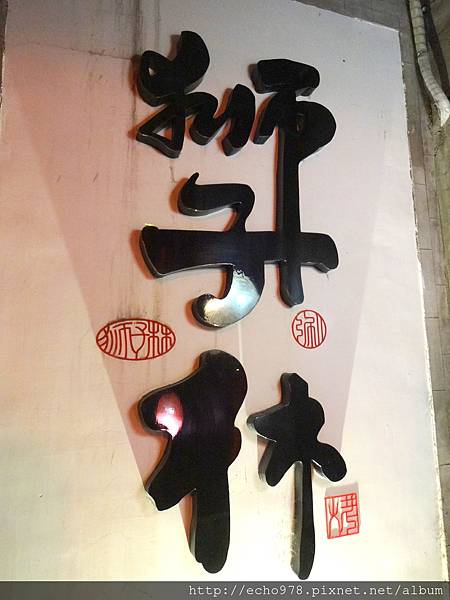 獅子林
http://echo978.pixnet.net/album